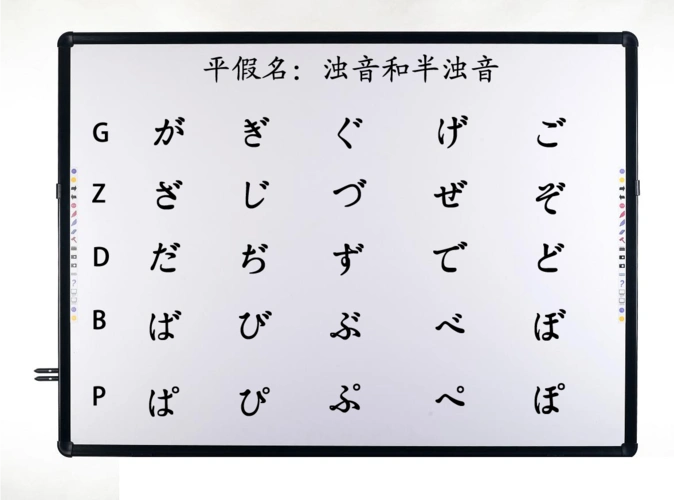 平假名：浊音和半浊音
G が ぎ ぐ げ ご
Z ざ じ づ ぜ ぞ
D だ ぢ ず で ど
B ば び ぶ べ ぼ
P ぱ ぴ ぷ ぺ ぽ